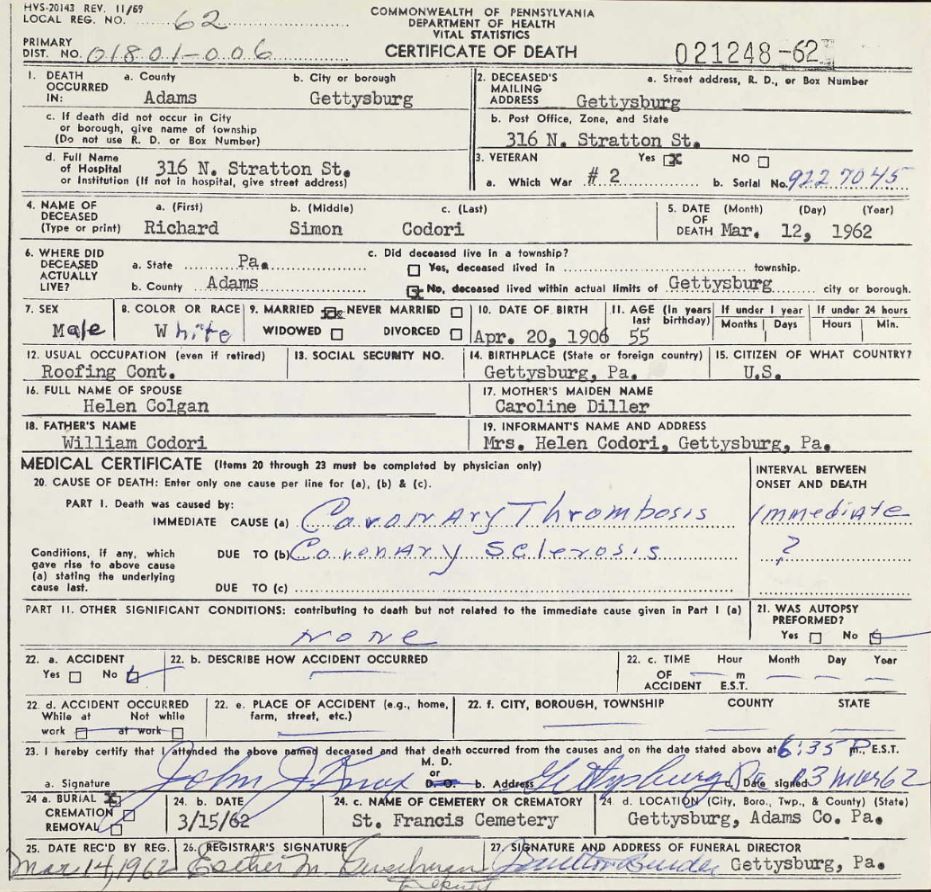 HVS-20143 REV. 11/69
LOCAL REG. NO. 62
COMMONWEALTH OF PENNSYLVANIA
DEPARTMENT OF HEALTH
VITAL STATISTICS
PRIMARY
DIST. NO. 01801-006
CERTIFICATE OF DEATH
021248-62
1. DEATH OCCURRED IN:
a. County
Adams
b. City or borough
Gettysburg
2. DECEASED'S MAILING ADDRESS
a. Street address, R. D., or Box Number
Gettysburg
c. If death did not occur in City
or borough, give name of township
(Do not use R. D. or Box Number)
b. Post Office, Zone, and State
316 N. Stratton St.
d. Full Name
of Hospital
or Institution (If not in hospital, give street address)
316 N. Stratton St.
3. VETERAN Yes X NO
a. Which War # 2 b. Serial No. 922 7045
4. NAME OF DECEASED (Type or print)
a. (First) b. (Middle) c. (Last)
Richard Simon Codori
5. DATE OF DEATH (Month) (Day) (Year)
Mar. 12, 1962
6. WHERE DID DECEASED ACTUALLY LIVE?
a. State Pa.
b. County Adams
c. Did deceased live in a township?
Yes, deceased lived in township.
No, deceased lived within actual limits of Gettysburg city or borough.
7. SEX
Male
8. COLOR OR RACE
White
9. MARRIED NEVER MARRIED
WIDOWED DIVORCED
10. DATE OF BIRTH
Apr. 20, 1906
11. AGE (In years last birthday)
55
If under 1 year
Months Days
If under 24 hours
Hours Min.
12. USUAL OCCUPATION (even if retired)
Roofing Cont.
13. SOCIAL SECURITY NO.
14. BIRTHPLACE (State or foreign country)
Gettysburg, Pa.
15. CITIZEN OF WHAT COUNTRY?
U.S.
16. FULL NAME OF SPOUSE
Helen Colgan
17. MOTHER'S MAIDEN NAME
Caroline Diller
18. FATHER'S NAME
William Codori
19. INFORMANT'S NAME AND ADDRESS
Mrs. Helen Codori, Gettysburg, Pa.
MEDICAL CERTIFICATE (Items 20 through 23 must be completed by physician only)
20. CAUSE OF DEATH: Enter only one cause per line for (a), (b) & (c).
INTERVAL BETWEEN
ONSET AND DEATH
PART I. Death was caused by:
IMMEDIATE CAUSE (a) Coronary Thrombosis
Immediate
Conditions, if any, which
gave rise to above cause
(a) stating the underlying
cause last.
DUE TO (b) Coronary Sclerosis
?
DUE TO (c)
PART II. OTHER SIGNIFICANT CONDITIONS: contributing to death but not related to the immediate cause given in Part I (a)
none
21. WAS AUTOPSY
PREFORMED?
Yes No
22. a. ACCIDENT
Yes No
22. b. DESCRIBE HOW ACCIDENT OCCURRED
22. c. TIME OF ACCIDENT
Hour Month Day Year
m
E.S.T.
22. d. ACCIDENT OCCURRED
While at work Not while at work
22. e. PLACE OF ACCIDENT (e.g., home,
farm, street, etc.)
22. f. CITY, BOROUGH, TOWNSHIP COUNTY STATE
23. I hereby certify that I attended the above named deceased and that death occurred from the causes and on the date stated above at 6:35 P m., E.S.T.
M. D.
or
D. O.
a. Signature John J Knox b. Address Gettysburg Pa c. Date signed 13 Mar 62
24 a. BURIAL X
CREMATION
REMOVAL
24. b. DATE
3/15/62
24. c. NAME OF CEMETERY OR CREMATORY
St. Francis Cemetery
24. d. LOCATION (City, Boro., Twp., & County) (State)
Gettysburg, Adams Co. Pa.
25. DATE REC'D BY REG.
Mar 14, 1962
26. REGISTRAR'S SIGNATURE
Esther M.
Deputy
27. SIGNATURE AND ADDRESS OF FUNERAL DIRECTOR
Gettysburg, Pa.